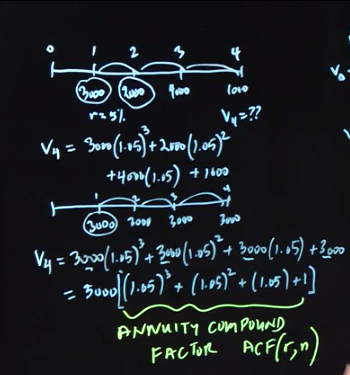 0 1 2 3 4
3000 2000 4000 1000
r=5% V₄=??
V₄ = 3000(1.05)³+2000(1.05)²
+4000(1.05) + 1000
1 2 3 4
3000 3000 3000 3000
V₄ = 3000(1.05)³+3000(1.05)² + 3000(1.05) + 3000
= 3000[(1.05)³ + (1.05)² + (1.05)+1]
ANNUITY COMPOUND
FACTOR ACF(r,n)